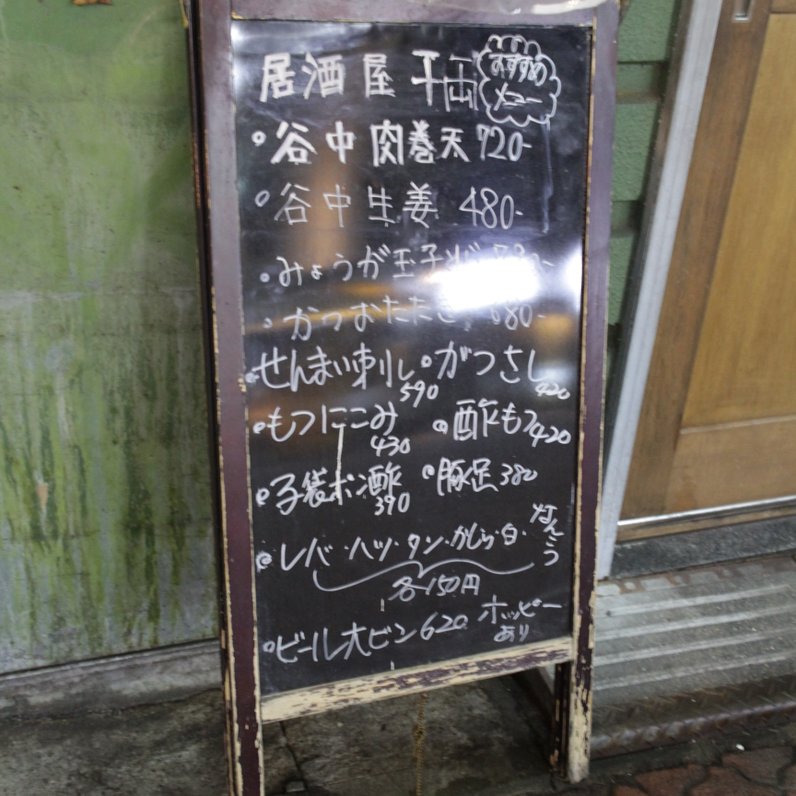 居酒屋 千両
おすすめ
メニュー
谷中肉巻天 720-
谷中生姜 480-
みょうが玉子
かつおたたき 680-
せんまい刺し 590
がつさし 420
もつにこみ 430
酢もつ 420
子袋ポン酢 390
豚足 380
レバ・ハツ・タン・かしら・白・なんこつ
各150円
ビール大ビン 620
ホッピー
あり